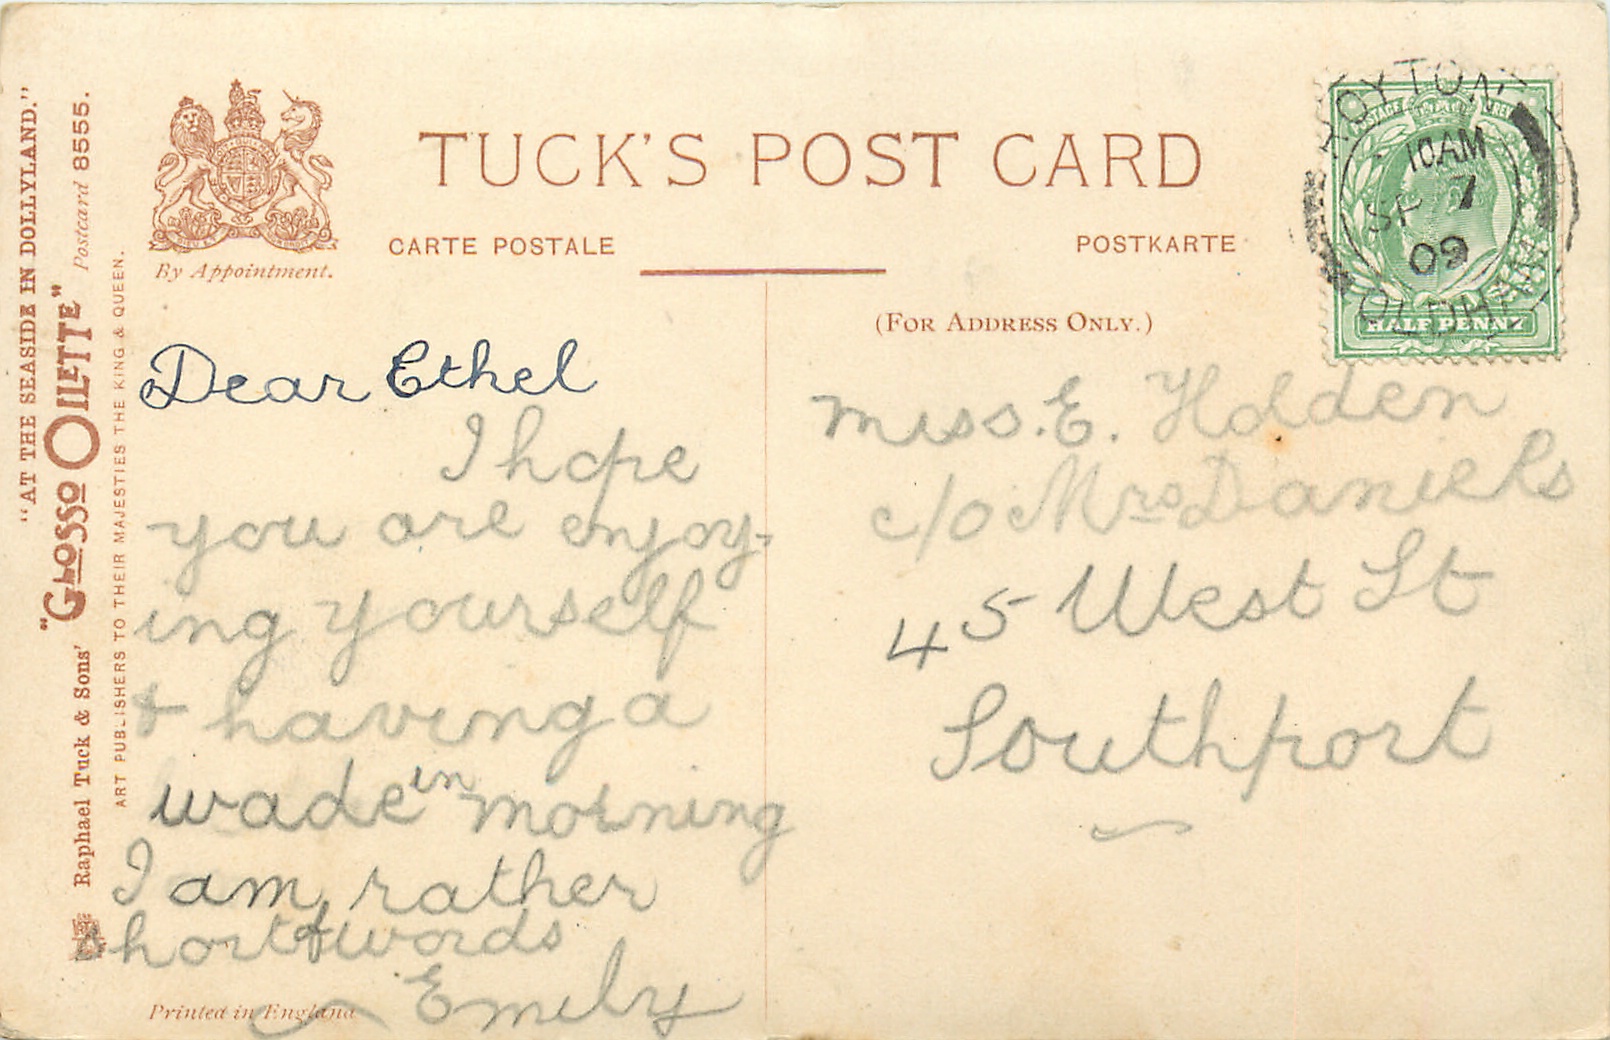 "AT THE SEASIDE IN DOLLYLAND."
Raphael Tuck & Sons' "GLOSSO OILETTE" Postcard 8555.
ART PUBLISHERS TO THEIR MAJESTIES THE KING & QUEEN.
By Appointment.
TUCK'S POST CARD
CARTE POSTALE
POSTKARTE
(FOR ADDRESS ONLY.)
ROYTON
10 AM
SP 7
09
OLDHAM
HALF PENNY
Dear Ethel
I hope
you are enjoy-
ing yourself
& having a
wade in morning
I am rather
short of words
Emily
Printed in England
Miss. E. Holden
c/o Mrs Daniels
45 West St
Southport